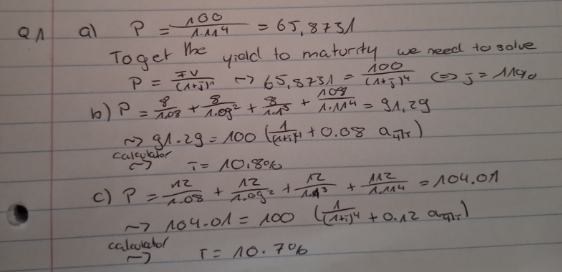 Q1 a) P = 100/1.11^4 = 65,8731
To get the yield to maturity we need to solve
P = FV/(1+j)^n ~> 65,8731 = 100/(1+j)^4 <=> j = 11%
b) P = 8/1.08 + 8/1.09^2 + 8/1.1^3 + 108/1.11^4 = 91,29
~> 91.29 = 100 (1/(1+i)^4 + 0.08 a4ır)
calculator ~> i = 10.8%
c) P = 12/1.08 + 12/1.09^2 + 12/1.1^3 + 112/1.11^4 = 104.01
~> 104.01 = 100 (1/(1+i)^4 + 0.12 a4ır)
calculator ~> i = 10.7%